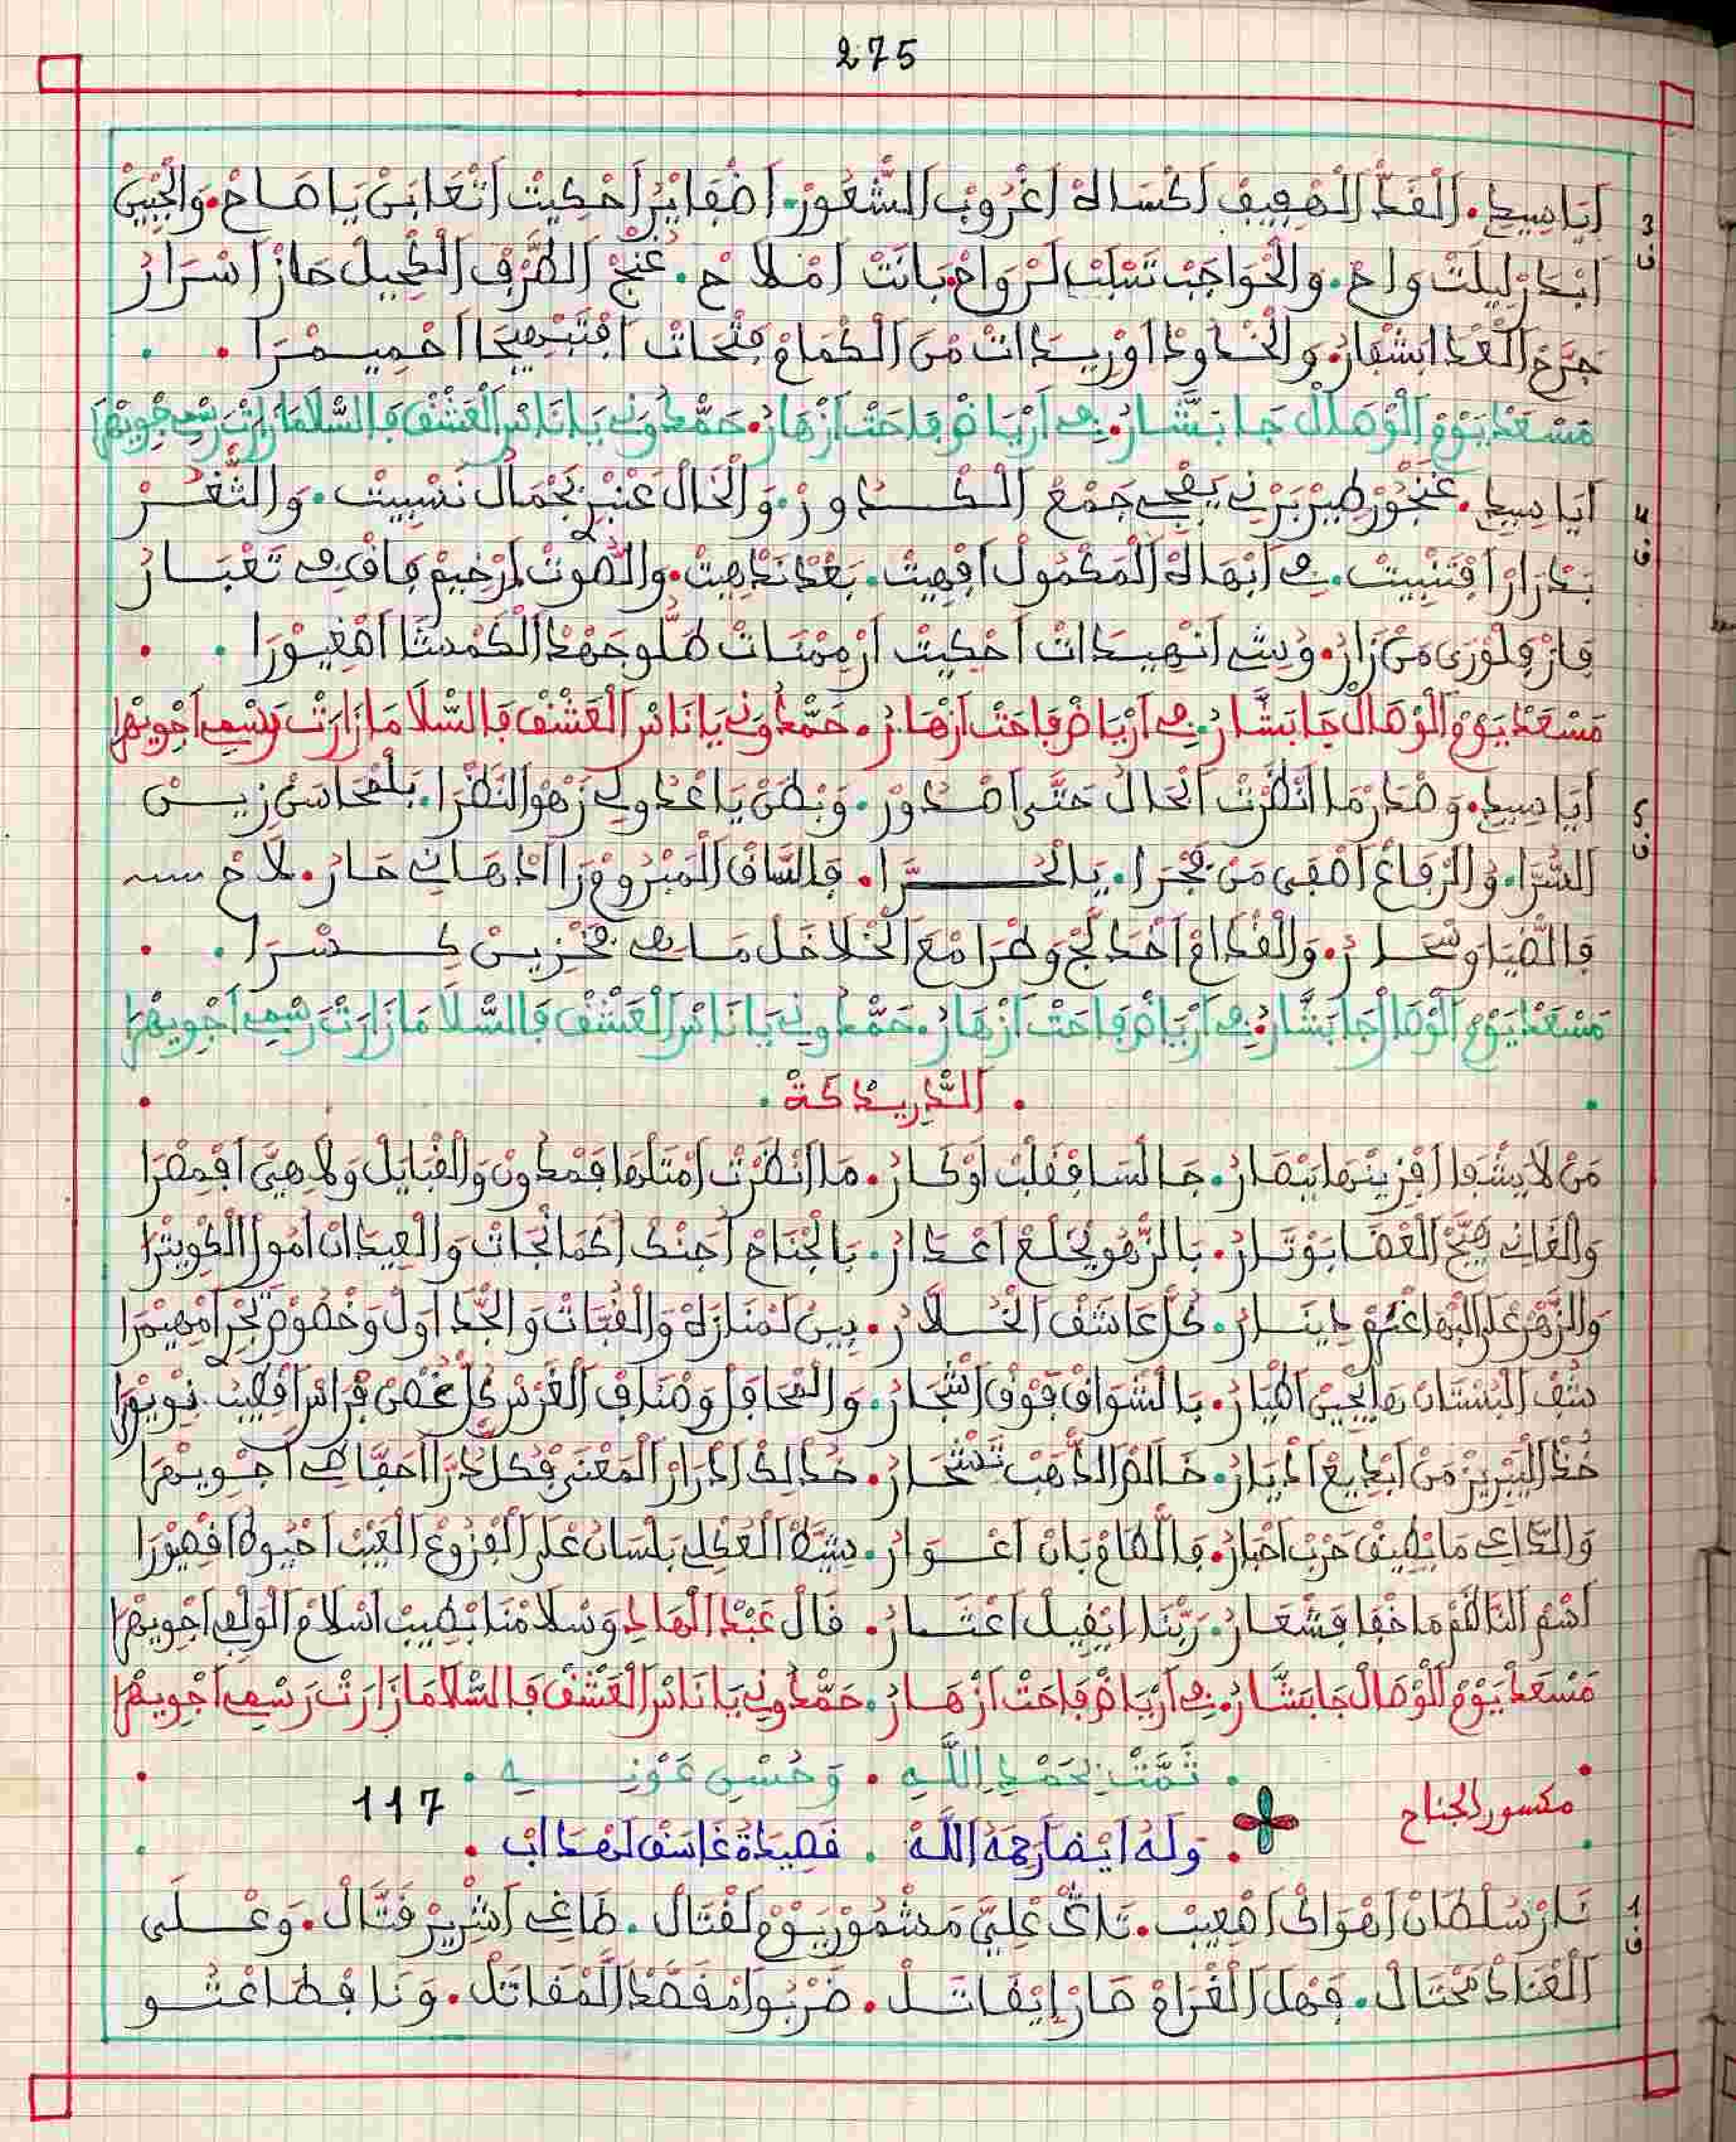 275
3 ف
أَيَا سِيدِي. اَلْقَدّْ اَلْهْفِيفْ اَكْسَاهْ اَغْرُوبْ الشّْعُورْ. اَضْفَايَرْ اَحْكِيتْ اَثْعَابَنْ يَا صَاحْ. وَالْجْبِينْ
اَبْدَرْ لِيلْتْ وَاحْ. وَالْحْوَاجَبْ تَسْلَبْ لَرْوَاحْ. بَانَتْ اَمْلَاحْ. غَنْجْ الطَّرْفْ اَلْكْحِيلْ حَازْ اَسْرَارْ
جَرَّحْ اَلْعْدَا بَشْفَارْ. وَالْخْدُودْ اَوْرِيدَاتْ مَنْ اَلْكْمَامْ فَتْحَاتْ
مَسْعَدْ يَوْمْ الَوْصَالْ جَا بَشَّارْ. فِي اَرْيَاضْ فَاحَتْ اَزْهَارْ. حَمّْدُونِي يَا نَاسْ الْعَشْقْ فَالسّْلَامَا زَارَتْ رَسْمِي جْوِيهْرَا
4 ف
أَيَا سِيدِي. عَنْجُورْ طِيرْ بَرْنِي يَفْجِي جَمْعْ اَلْكْدُورْ. وَالْخَالْ عَنْبْرِي بَجْمَالْ نَسْبِيتْ. وَالثّْغَرْ
بَدْرَارْ اَفْتَنِيتْ. فِي اَبْهَاهْ اَلْمَكْمُولْ اَفْهِيتْ. بَعْدْ نَدْهِيتْ. وَالصُّوتْ اَرْخِيمْ فَاقْ فِي تَعْبَارْ
فَازْ فِلْوْرَى مَنْ زَارْ. وُشِي اَنْهِيدَاتْ اَحْكِيتْ اَرْمِمْنَاتْ
مَسْعَدْ يَوْمْ الَوْصَالْ جَا بَشَّارْ. فِي اَرْيَاضْ فَاحَتْ اَزْهَارْ. حَمّْدُونِي يَا نَاسْ الْعَشْقْ فَالسّْلَا مَا زَارَتْ رَسْمِي اَجْوِيهْرَا
5 ف
أَيَا سِيدِي. وَصْدَرْ مَا اَنْظَرْتْ اَبْحَالُ حَتَّى اَصْدُورْ. وَبْطَنْ يَا عْدُولِي زَهْوْ النَّظْرَا. بَلْمْحَاسَنْ زِيـنْ
السُّرَّا. وُالرْفَاغْ اَصْفَى مَنْ فَجْرَا. يَا لْحُـــرَّا. فَالسَّاقْ اَلْمَبْرُومْ زَا اَدْهَانِي حَارْ. لَاحْ
فَالضّْيَا وَسْحَارْ. وَالْقْدَامْ اَخْدَلَّجْ وَطْرَا مْعَ الْخْلَاخَلْ
مَسْعَدْ يَوْمْ الَوْصَالْ جَا بَشَّارْ. فِي اَرْيَاضْ فَاحَتْ اَزْهَارْ. حَمّْدُونِي يَا نَاسْ الْعَشْقْ فَالسّْلَا مَا زَارَتْ رَسْمِي اَجْوِيهْرَا
. اَلدّْرِيدْكَةْ .
مَنْ لَا يَشْفَا اَفْزِينْهَا يَبْصَارْ. جَا لْسَا فِقَلْبْ اَوْكَارْ. مَا اَنْظَرْتْ اَمْثَلْهَا فَمْدُونْ وَالْقْبَايَلْ وَلَا هِيَّ اَفْمِصْرَا
وَالْغَانِي هَيَّجْ الْعْضَا بَوْتَارْ. بَالزَّهْوْ يَخْلَعْ اَعْدَارْ. بَالْجْنَاحْ اَجْنَكْ اَكْمَانْجَاتْ وَالْعِيدَانْ اَمُورْ الْكْوِيتْرَا
وَالزَّهْرْ عْلَى الْبْهَا اَغْنَمْ دِينَارْ. كُلّْ عَاشَقْ اَلْخُـلَّارْ. بِينْ لَمْنَازَهْ وَالْقُبَّاتْ وَالْجْدَاوَلْ وَخْصُوصْ
شُفْ الْبُسْتَانْ هَا يْحِينْ اَطْيَارْ. بَالشْوَاقْ فَوْقْ اَشْجَارْ. وَالْمْحَافَلْ وَصْنَافْ الْغَرْسْ كُلّْ غُصْنْ فْرَاسْ
خُذْ الِيبْرِيزْ مَنْ اَبْدِيعْ اَدْيَارْ. خَالَصْ الذّْهَبْ تَشْحَارْ. خُذْ لَكْ اَدْرَارْ اَلْمَعْنَى فْكُلّْ دُرَّا اَحْقَايَقْ اَجْوِيهْرَا
وَالدَّاعِي مَا يْطِيقْ حَرْبْ اَحْبَارْ. فَالطَّامْ بَانْ اَعْوَارْ. شِيَّدْ الْعْكْلِي بَلْسَانُ عْلَى الْفْرُوعْ الْعَيْبْ اَخْيُوطُ اَقْهِيُّورَا
اَسْمْ النَّاظَمْ مَا خْفَا فَشْعَارْ. رَبّْنَا اِيقِيلْ اَعْثَارْ. قَالْ عَبْدْ الْهَادِي وَسْلَامْنَا يْطِيبْ اَسْلَامْ الْوَلْفِي اَجْوِيهْرَا
مَسْعَدْ يَوْمْ الَوْصَالْ جَا بَشَّارْ. فِي اَرْيَاضْ فَاحَتْ اَزْهَارْ. حَمّْدُونِي يَا نَاسْ الْعَشْقْ فَالسّْلَا مَا زَارَتْ رَسْمِي اَجْوِيهْرَا
. تَمَّتْ بِحَمْدِ اللَّهِ . وَحُسْنِ عَوْنِـهِ .
مكسور الجناح
117
. وَلَهُ اَيْضاً رَحِمَهُ اَللَّهْ . قَصِيدَةُ غَاسَقْ لَهْدَابْ .
1 ف
ثَـارْ سُلْطَانْ اَهْوَاكْ اَصْعِيبْ. تَاكِي عْلِيَّ مَشْمُورْ يَوْمْ لَقْتَالْ. طَاغِي اَشْرِيرْ قَتَّالْ. وَعْـلَى
اَلْعْنَادْ مَحْتَالْ. فَهْلْ اَلْغْرَامْ صَارْ اِيقَاتَـلْ. ضَرْبُ اَمْفَصَّدْ اَلْمْقَاتَلْ. وَنَا فْطَاعْتُـو